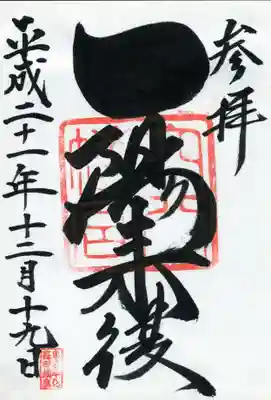 参拝
一陽来復
平成二十一年十二月十九日